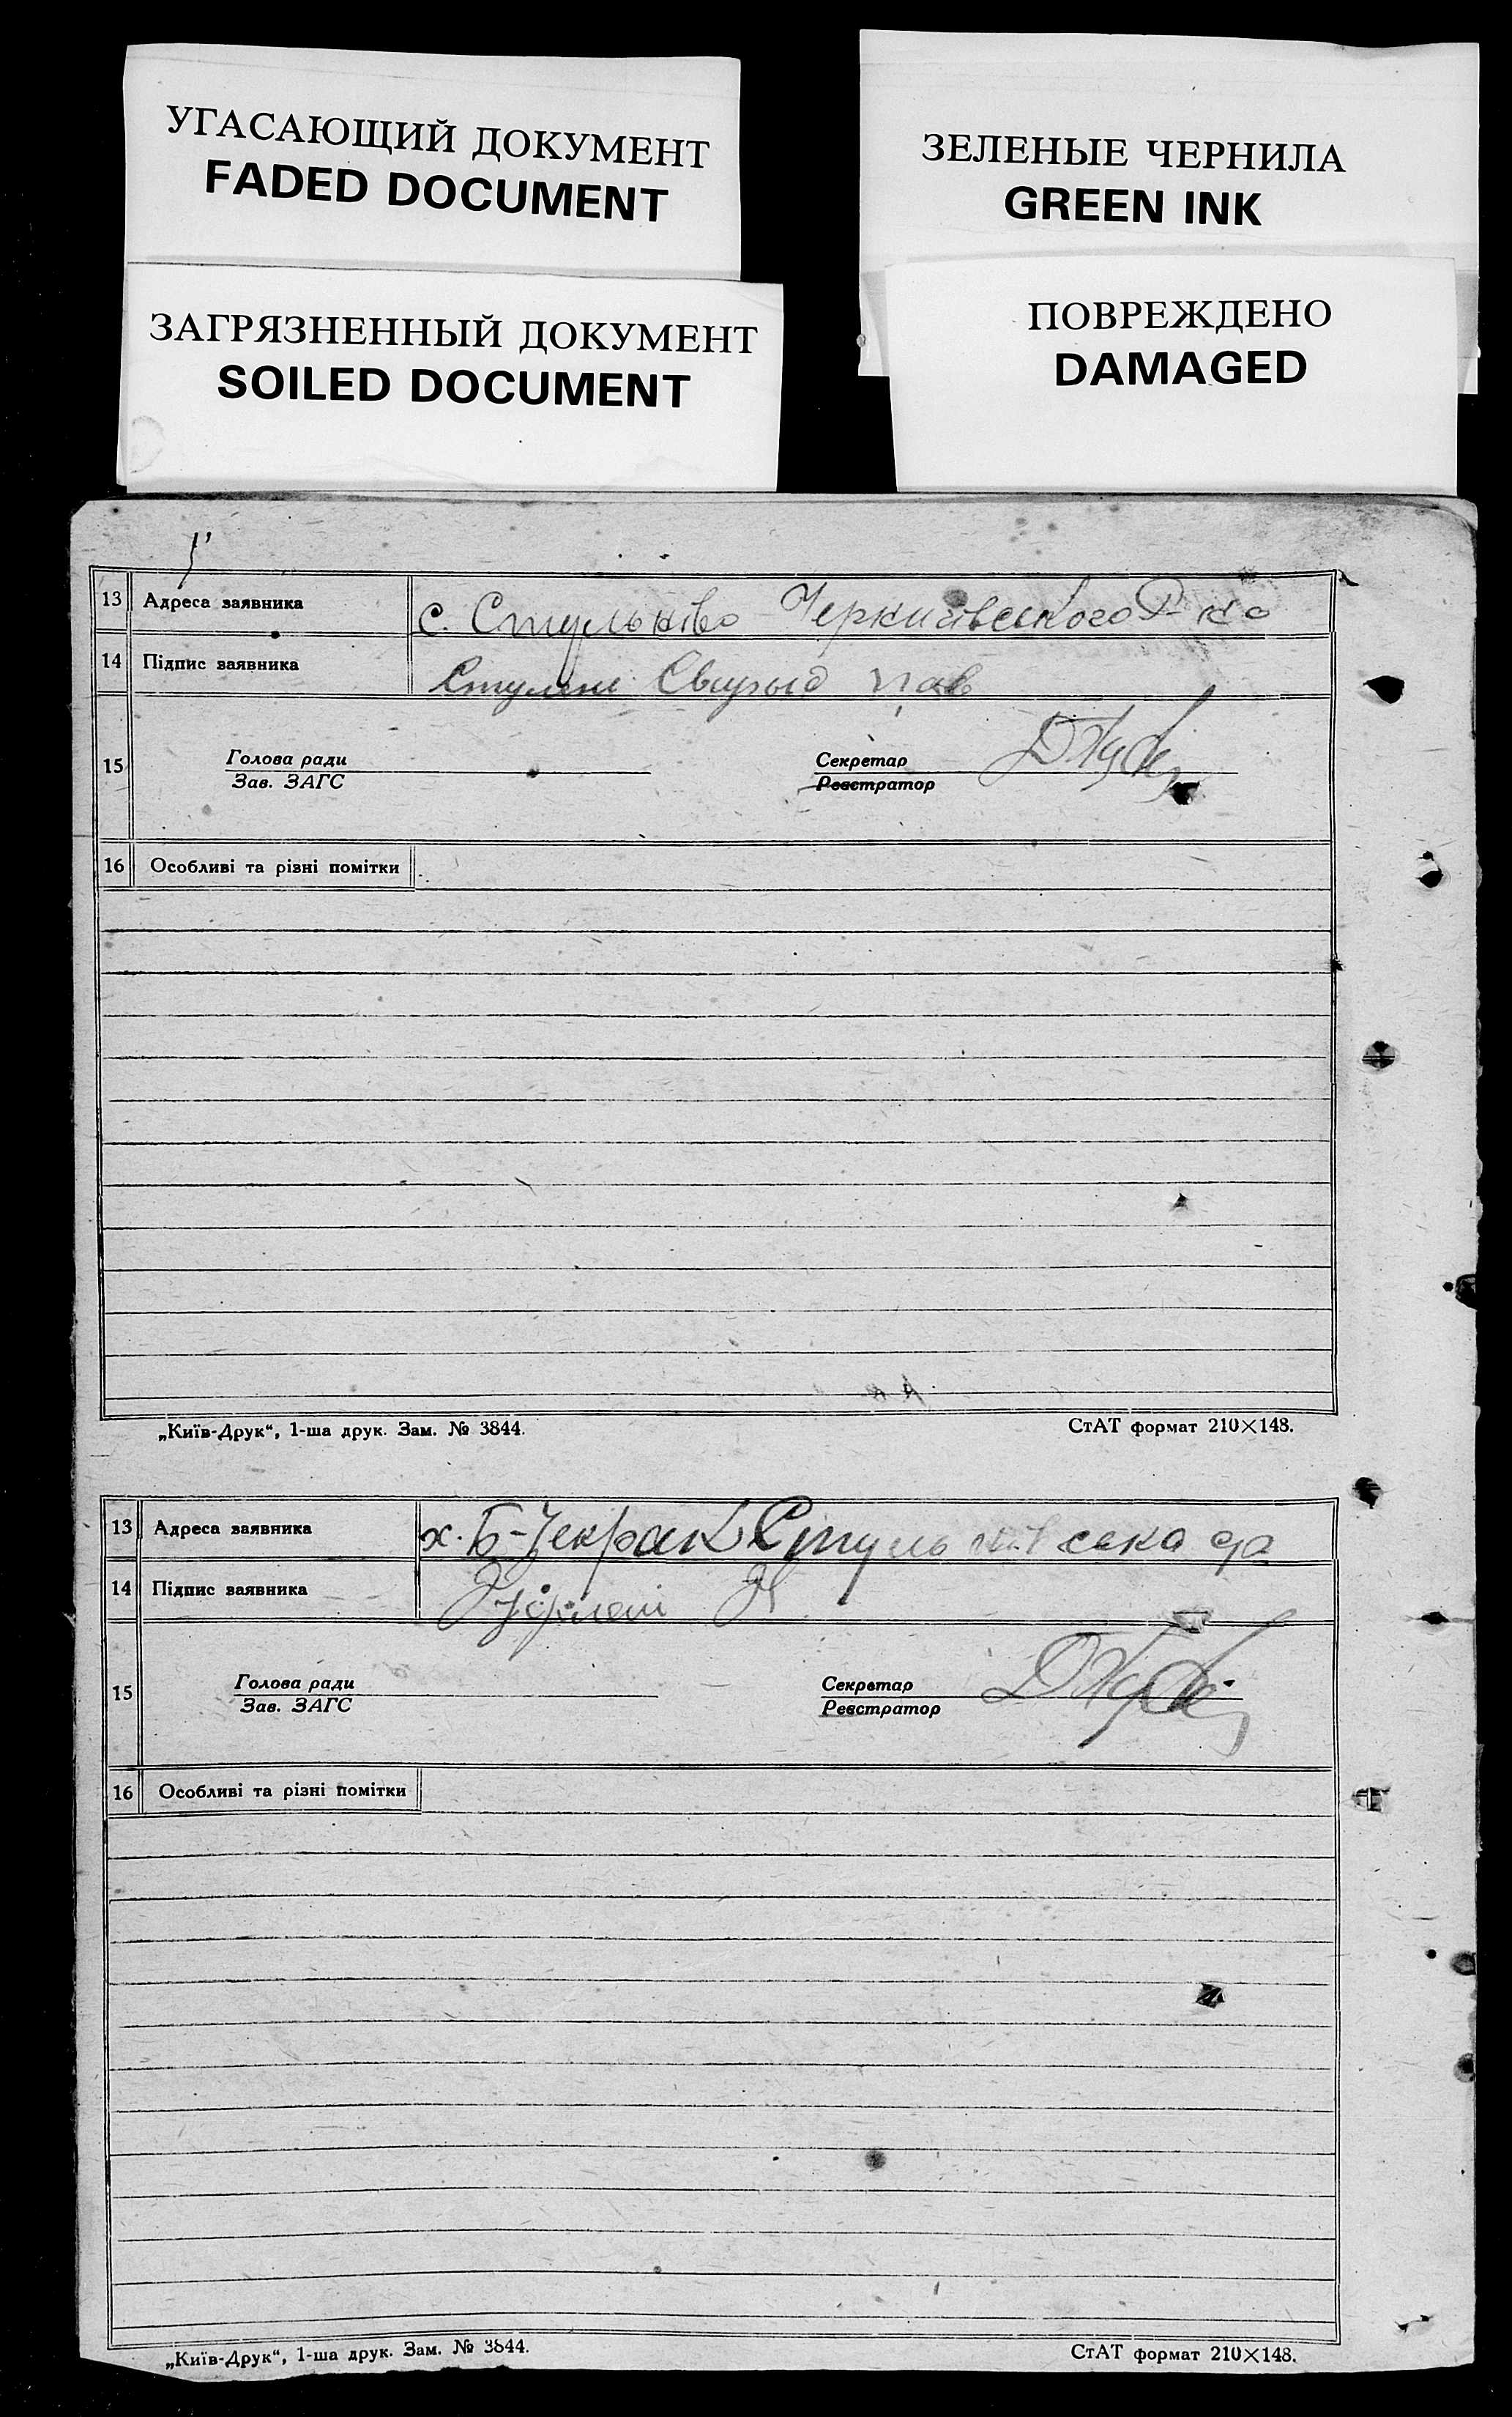 УГАСАЮЩИЙ ДОКУМЕНТ
FADED DOCUMENT
ЗЕЛЕНЫЕ ЧЕРНИЛА
GREEN INK
ЗАГРЯЗНЕННЫЙ ДОКУМЕНТ
SOILED DOCUMENT
ПОВРЕЖДЕНО
DAMAGED
13 Адреса заявника с.
14 Підпис заявника
15 Голова ради Секретар
Зав. ЗАГС Реєстратор
16 Особливі та різні помітки
„Київ-Друк“, 1-ша друк. Зам. № 3844. СтАТ формат 210×148.
13 Адреса заявника х.
14 Підпис заявника
15 Голова ради Секретар
Зав. ЗАГС Реєстратор
16 Особливі та різні помітки
„Київ-Друк“, 1-ша друк. Зам. № 3844. СтАТ формат 210×148.